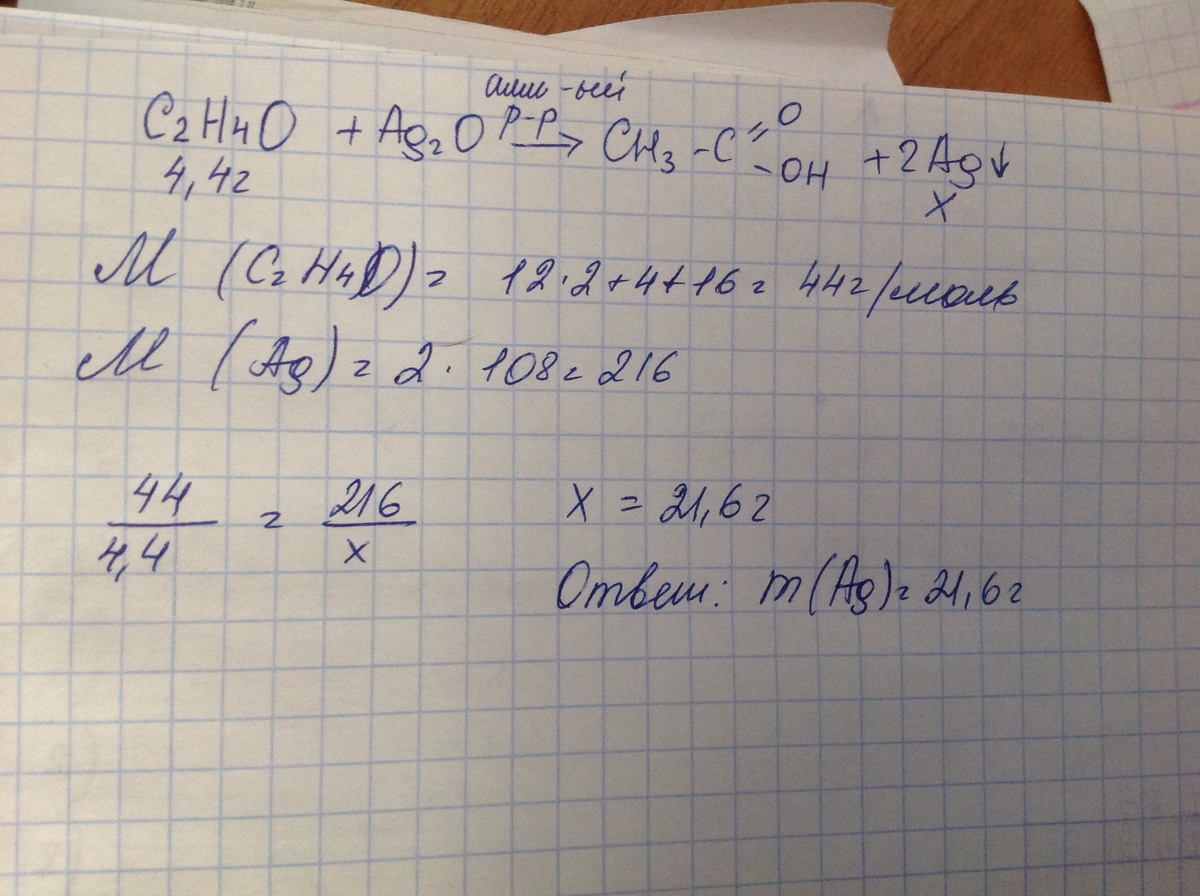 амм-ый
C₂H₄O + Ag₂O р-р → CH₃-C =O -OH + 2Ag↓
4,4г x
M (C₂H₄O) = 12·2+4+16 = 44г/моль
M (Ag) = 2·108 = 216
44/4,4 = 216/x x = 21,6г
Ответ: m(Ag) = 21,6г